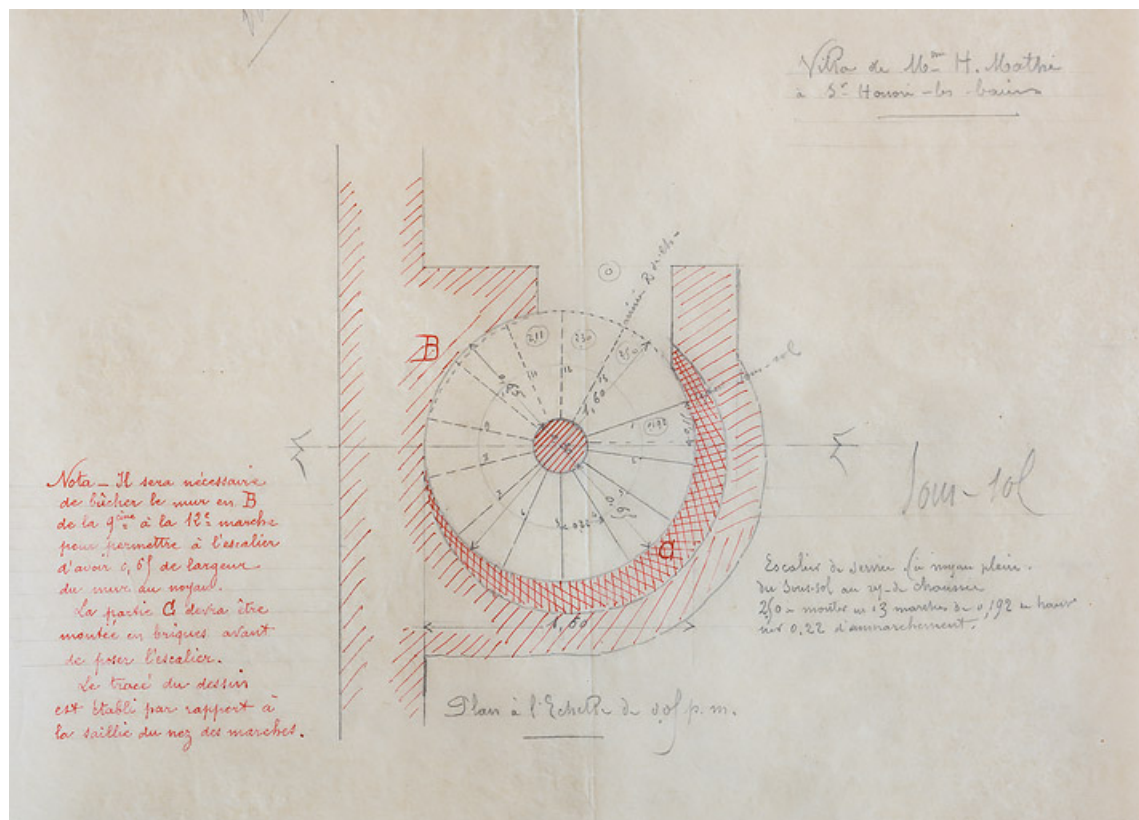 Villa de Mme H. Mathé
à St Honoré-les-bains
B
0
2,11
2,30
2,50
1,60
0,65
0,192
0,65
C
1,60
Sous-sol
Nota – Il sera nécessaire
de bûcher le mur en B
de la 9ème à la 12e marche
pour permettre à l'escalier
d'avoir 0,65 de largeur
du mur au noyau.
La partie C devra être
montée en briques avant
de poser l'escalier.
Le tracé du dessin
est établi par rapport à
la saillie du nez des marches.
Escalier de service à noyau plein.
du Sous-sol au rez-de chaussée
2,50 à monter en 13 marches de 0,192 de haut
sur 0.22 d'emmarchement.
Plan à l'Echelle de 0,05 p.m.